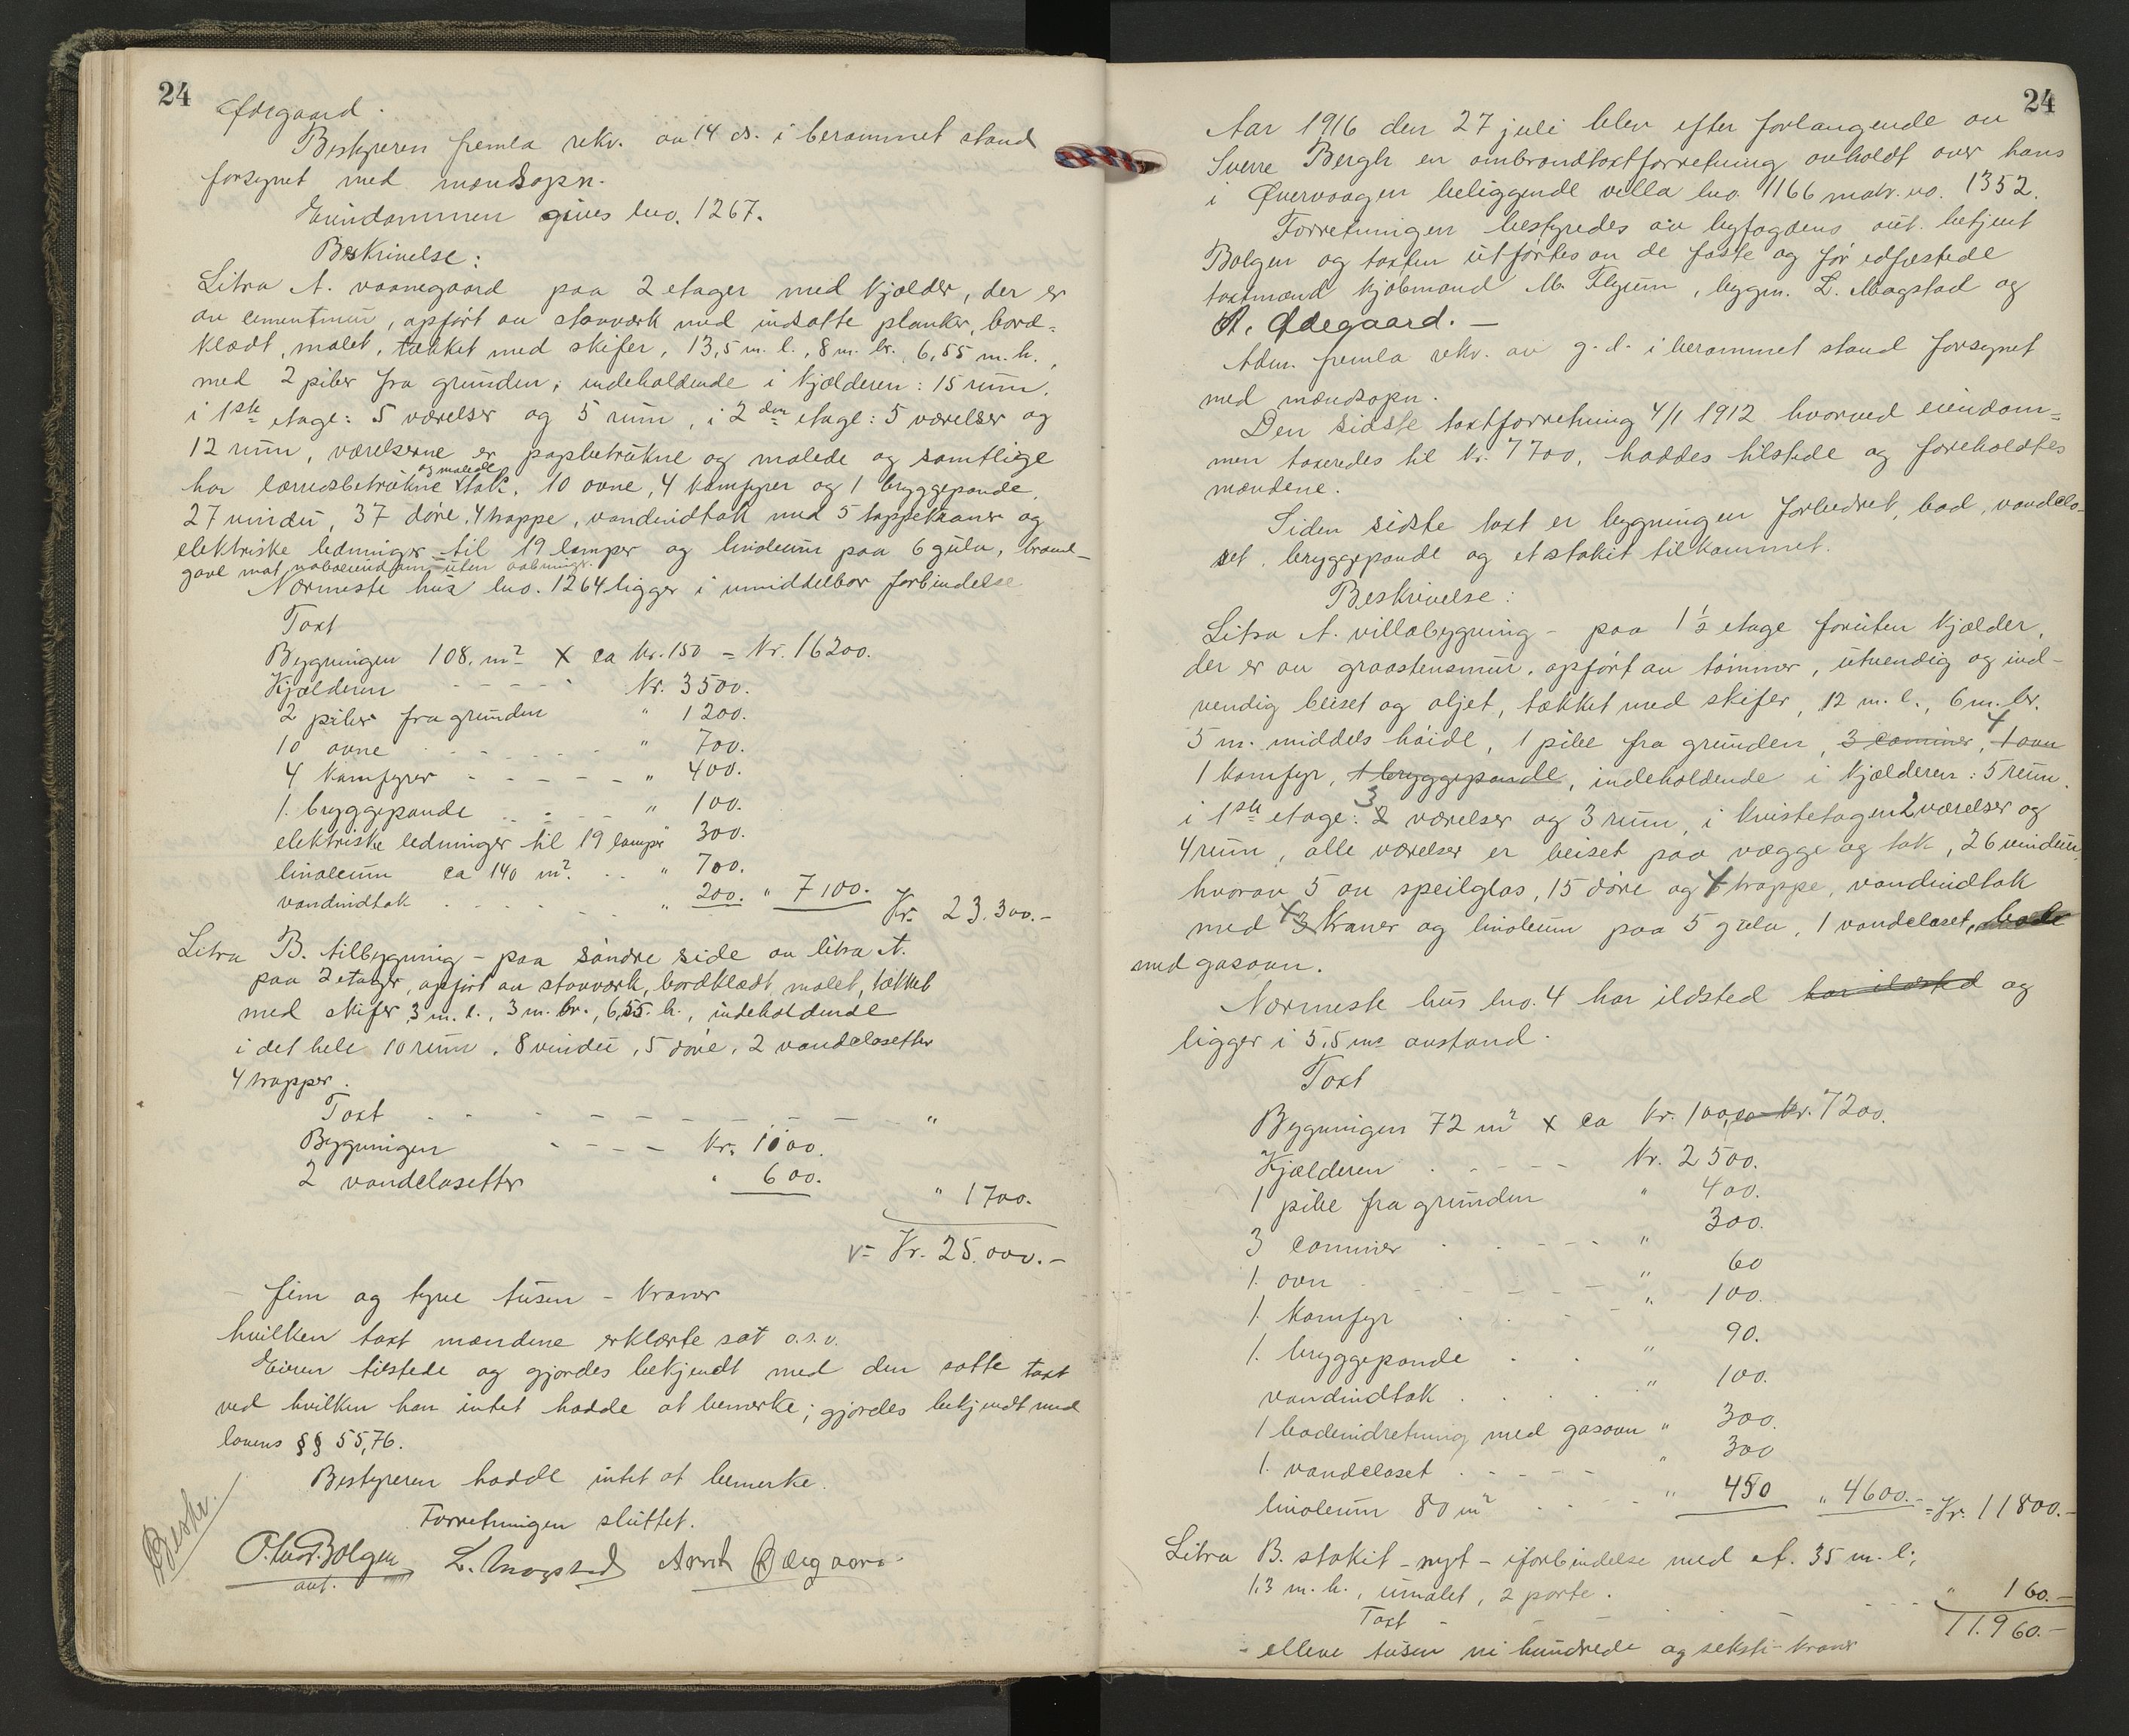 24
Ødegaard.
Bestyreren fremla rekv. av 14 ds. i berammet stand
forsynet med mændsopn.
Eiendommen gives bno. 1267.
Beskrivelse:
Litra A. vaanegaard paa 2 etager med kjælder, der er
av cementmur, opført av stavværk med indsatte planker, bord-
klædt, malet, tækket med skifer, 13,5 m. l., 8 m. br. 6,55 m. h.,
med 2 piber fra grunden; indeholdende i kjælderen: 15 rum.
i 1ste etage: 5 værelser og 5 rum, i 2den etage: 5 værelser og
12 rum, værelserne er papbetrukne og malede og samtlige
har lærredsbetrukne og malede tak. 10 ovne, 4 komfyrer og 1 bryggepande,
27 vindu, 37 døre, 4 trappe, vandindtak med 5 tappekraner og
elektriske ledninger til 19 lamper og linoleum paa 6 gulv, brand-
gavl mot naboeiendom uten aabninger.
Nærmeste hus bno. 1264 ligger i umiddelbar forbindelse
Taxt
Bygningen 108. m² x ca kr. 150 = Kr. 16200.
Kjælderen - - - - Kr. 3500.
2 piber fra grunden " 1200.
10 ovne - - - - " 700.
4 komfyrer - - - - " 400.
1. bryggepande - - - " 100.
elektriske ledninger til 19 lamper " 300.
linoleum ca 140 m². - - " 700.
vandindtak - - - - " 200. " 7100. Kr. 23.300.-
Litra B. tilbygning - paa søndre side av litra A.
paa 2 etager, opført av stavværk, bordklædt, malet, tækket
med skifer 3 m. l., 3 m. br., 6,55. h., indeholdende
i det hele 10 rum, 8 vindu, 5 døre, 2 vandclosetter
4 trapper.
Taxt - - - - - - - - "
Bygningen - - - Kr. 1100.
2 vandclosetter " 600.
" 1700.
Kr. 25.000.-
- fem og tyve tusen - kroner
hvilken taxt mændene erklærte sat o.s.v.
Eieren tilstede og gjordes bekjendt med den satte taxt
ved hvilken han intet hadde at bemerke; gjordes bekjendt med
lovens §§ 55,76.
Bestyreren hadde intet at bemerke.
Forretningen sluttet.
Beskr.
Bolgen L. Magstad Ødegaard
aut.
24
Aar 1916 den 27 juli blev efter forlangende av
Sverre Bergh en ombrandtaxtforretning avholdt over hans
i Qvervaagen beliggende villa bno. 1166 matr. no. 1352.
Forretningen bestyredes av byfogdens aut. betjent
Bolgen og taxten utførtes av de faste og før edfæstede
taxtmænd kjøbmand M. Flyum, bygm. L. Magstad og
A. Ødegaard. -
Adm. fremla rekv. av g. d. i berammet stand forsynet
med mændsopn.
Den sidste taxtforretning 4/1 1912 hvorved eiendom-
men taxeredes til kr. 7700, haddes tilstede og foreholdtes
mændene.
Siden sidste taxt er bygningen forbedret, bad, vandclo-
set, bryggepande og et stakit tilkommet.
Beskrivelse:
Litra A. villabygning - paa 1½ etage foruten kjælder,
der er av graastensmur, opført av tømmer, utvendig og ind-
vendig beiset og oljet, tækket med skifer, 12 m. l., 6 m. br.
5 m. middels høide, 1 pibe fra grunden, 3 caminer, 4 1 ovn
1 komfyr, 1 bryggepande, indeholdende i kjælderen: 5 rum.
i 1ste etage: 3 2 værelser og 3 rum, i kvistetagen 2 værelser og
4 rum, alle værelser er beiset paa vægge og tak, 26 vinduer,
hvorav 5 av speilglas, 15 døre og 4 trappe, vandindtak
med 4 3 kraner og linoleum paa 5 gulv, 1 vandcloset,
med gasovn.
Nærmeste hus bno. 4 har ildsted har ildsted og
ligger i 5,5 ms avstand.
Taxt
Bygningen 72 m² x ca kr. 100, ca kr. 7200.
Kjælderen - - - - Kr. 2500.
1 pibe fra grunden " 400.
3 caminer - - - - " 300.
1. ovn - - - - " 60
1. komfyr - - - " 100.
1. bryggepande - - " 90.
vandindtak - - - " 100.
1 badeindretning med gasovn " 300.
1. vandcloset - - - " 300
linoleum 80 m² - - - " 450 " 4600.- = Kr. 11800.-
Litra B. stakit - nyt - i forbindelse med A. 35 m. l.,
1,3 m. h., umalet, 2 porte.
Taxt - - - " 160.-
11.960.-
- elleve tusen ni hundrede og seksti - kroner